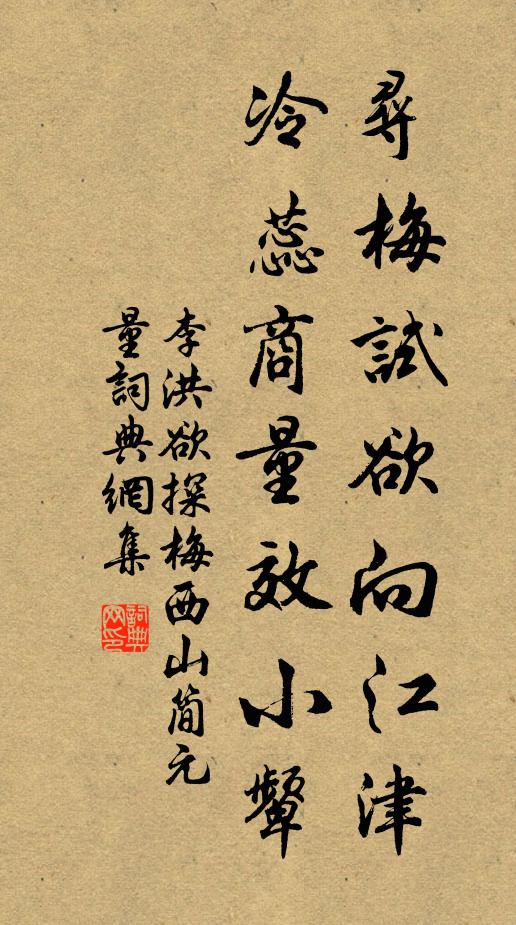 尋梅試欲向江津
冷蕊商量效小顰
李洪欲探梅西山簡元
量詞典網集
詞典
网印